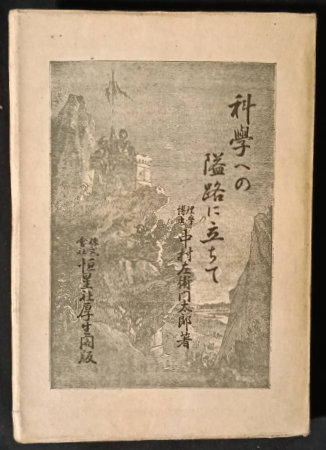 科學への
隘路に立ちて
理學
博士
中村左衛門太郎著
株式
會社
恒星社厚生閣版